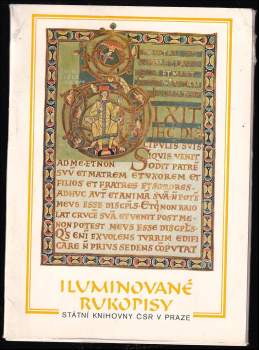 DIXIT
IEC DIS
CIPULIS SUIS
SIQVIS VENIT
AD ME ET NON ODIT PATRĒ
SVV ET MATREM ET VXOREM ET
FILIOS ET FRATRES ET SORORES
ADHVC AVT ET ANIMA SVĀ N POTE
MEVS ESSE DISCPLS ET Q NON BAIO
LAT CRVCĒ SVĀ ET VENIT POST ME
NON POTEST MEVS ESSE DISCPLS
QS ENI EX VOLENS TVRRIM EDIFI
CARE N PRIVS SEDENS COPVTAT
ILUMINOVANÉ
RUKOPISY
STÁTNÍ KNIHOVNY ČSR V PRAZE